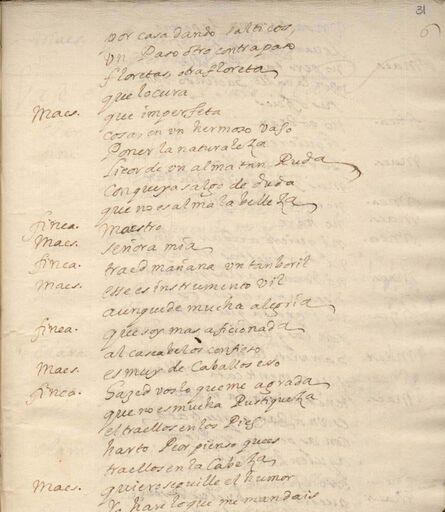 31
6
por casa dando salticos,
Un Paso otro contrapaso
floretas, otra floreta
que locura
Maes. que imperfeta
cosa, en un hermoso vaso
Poner la naturaleza
licor de un alma tan Ruda
con que ya salgo de duda
que no es alma la belleza
finea. Maestro
Maes. señora mia
finea. traed mañana un tanboril
Maes. esse es instrumento vil
aunque de mucha alegria
finea. que soy mas aficionada
al cascabel os confieso
Maes. es muy de Caballos esso
finea. hazed vos lo que me agrada
que no es mucha Rustiqueza
el traellos en los Pies
harto Peor pienso que es
traellos en la Cabeza
Maes. quiero seguille el humor
Yo hare lo que me mandais